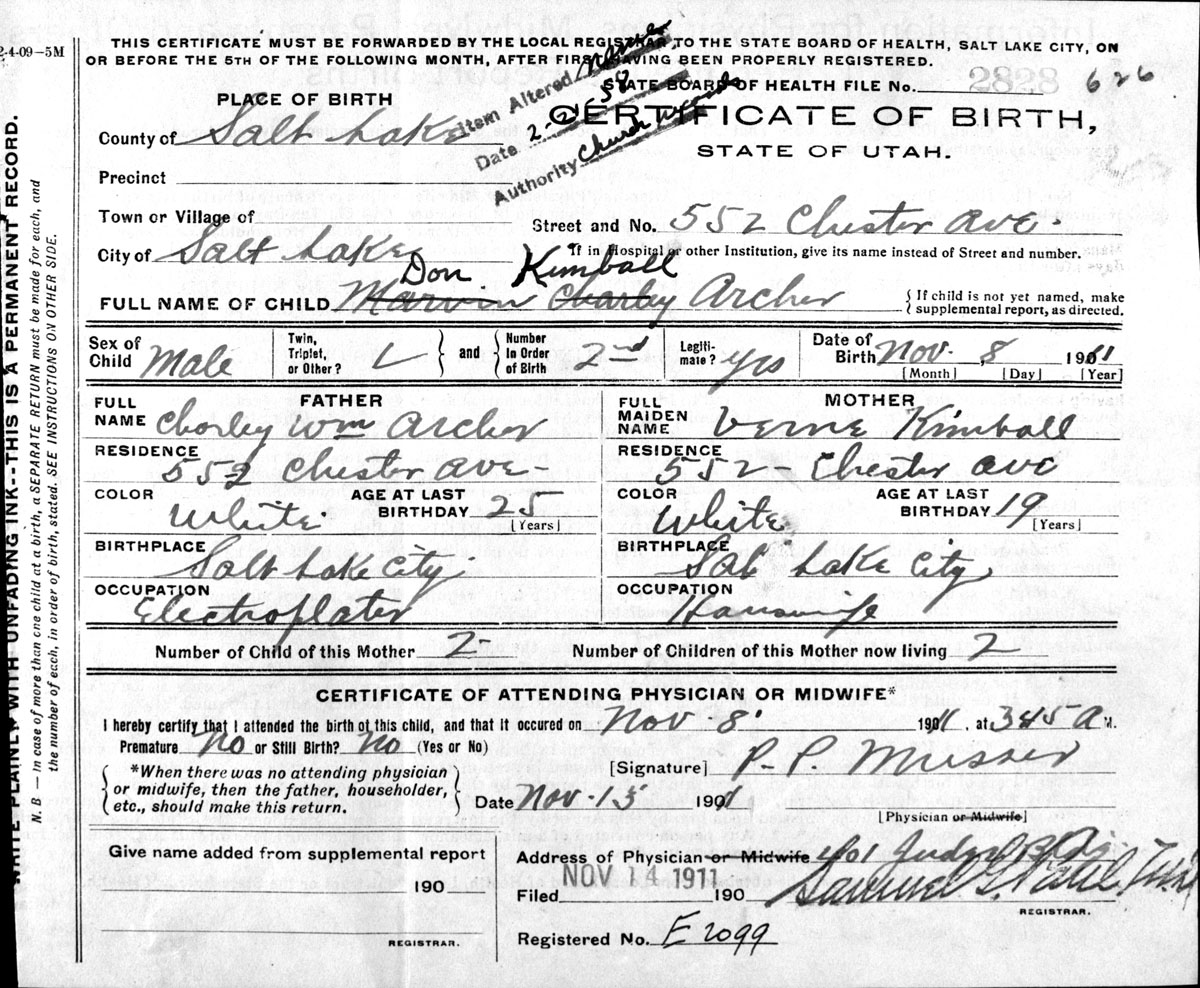 2-4-09-5M
THIS CERTIFICATE MUST BE FORWARDED BY THE LOCAL REGISTRAR TO THE STATE BOARD OF HEALTH, SALT LAKE CITY, ON
OR BEFORE THE 5TH OF THE FOLLOWING MONTH, AFTER FIRST HAVING BEEN PROPERLY REGISTERED.
STATE BOARD OF HEALTH FILE No. 2828 626
Item Altered Names
Date 2 58
Authority Church Records
PLACE OF BIRTH
CERTIFICATE OF BIRTH,
STATE OF UTAH.
County of Salt Lake
Precinct
Town or Village of
Street and No. 552 Chester Ave.
City of Salt Lake
If in Hospital or other Institution, give its name instead of Street and number.
Don Kimball
FULL NAME OF CHILD Marvin Charley Archer
{ If child is not yet named, make
supplemental report, as directed.
Sex of Child Male
Twin, Triplet, or Other?
and
Number In Order of Birth 2nd
Legiti-mate? yes
Date of Birth Nov. 8 1911
[Month] [Day] [Year]
FATHER
FULL NAME Charley Wm Archer
RESIDENCE 552 Chester Ave-
COLOR White
AGE AT LAST BIRTHDAY 25
[Years]
BIRTHPLACE Salt Lake City
OCCUPATION Electroplater
MOTHER
FULL MAIDEN NAME Verne Kimball
RESIDENCE 552- Chester Ave
COLOR White
AGE AT LAST BIRTHDAY 19
[Years]
BIRTHPLACE Salt Lake City
OCCUPATION Housewife
Number of Child of this Mother 2-
Number of Children of this Mother now living 2
CERTIFICATE OF ATTENDING PHYSICIAN OR MIDWIFE*
I hereby certify that I attended the birth of this child, and that it occured on Nov. 8. 1911, at 345 A M.
Premature No or Still Birth? No (Yes or No)
*When there was no attending physician
or midwife, then the father, householder,
etc., should make this return.
[Signature] P. P. Musser
Date Nov. 13 1901
[Physician or Midwife]
Give name added from supplemental report
190
REGISTRAR.
Address of Physician or Midwife 401 Judge Bldg
Filed NOV 14 1911 190
Samuel G.
REGISTRAR.
Registered No. E 2099
WRITE PLAINLY WITH UNFADING INK--THIS IS A PERMANENT RECORD.
N. B — In case of more than one child at a birth, a SEPARATE RETURN must be made for each, and
the number of each, in order of birth, stated. SEE INSTRUCTIONS ON OTHER SIDE.